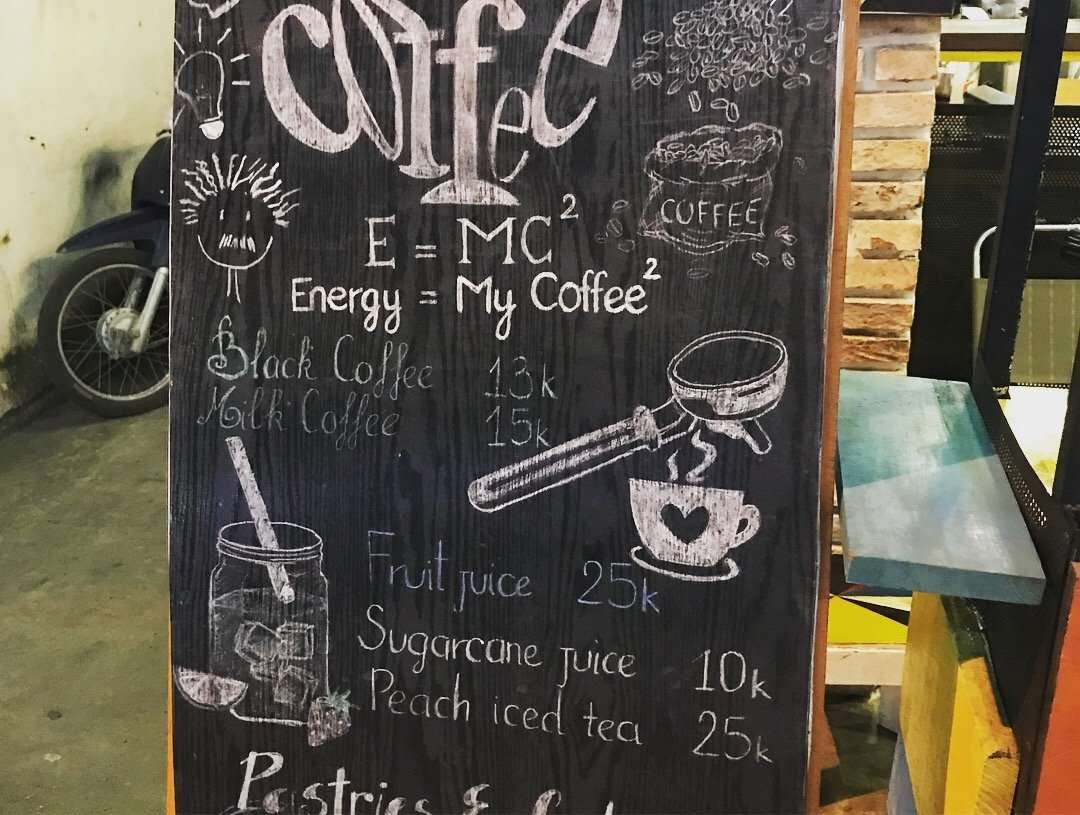 coffee
CUFFEE
E = MC²
Energy = My Coffee²
Black Coffee 13k
Milk Coffee 15k
Fruit juice 25k
Sugarcane juice 10k
Peach iced tea 25k
Pastries &